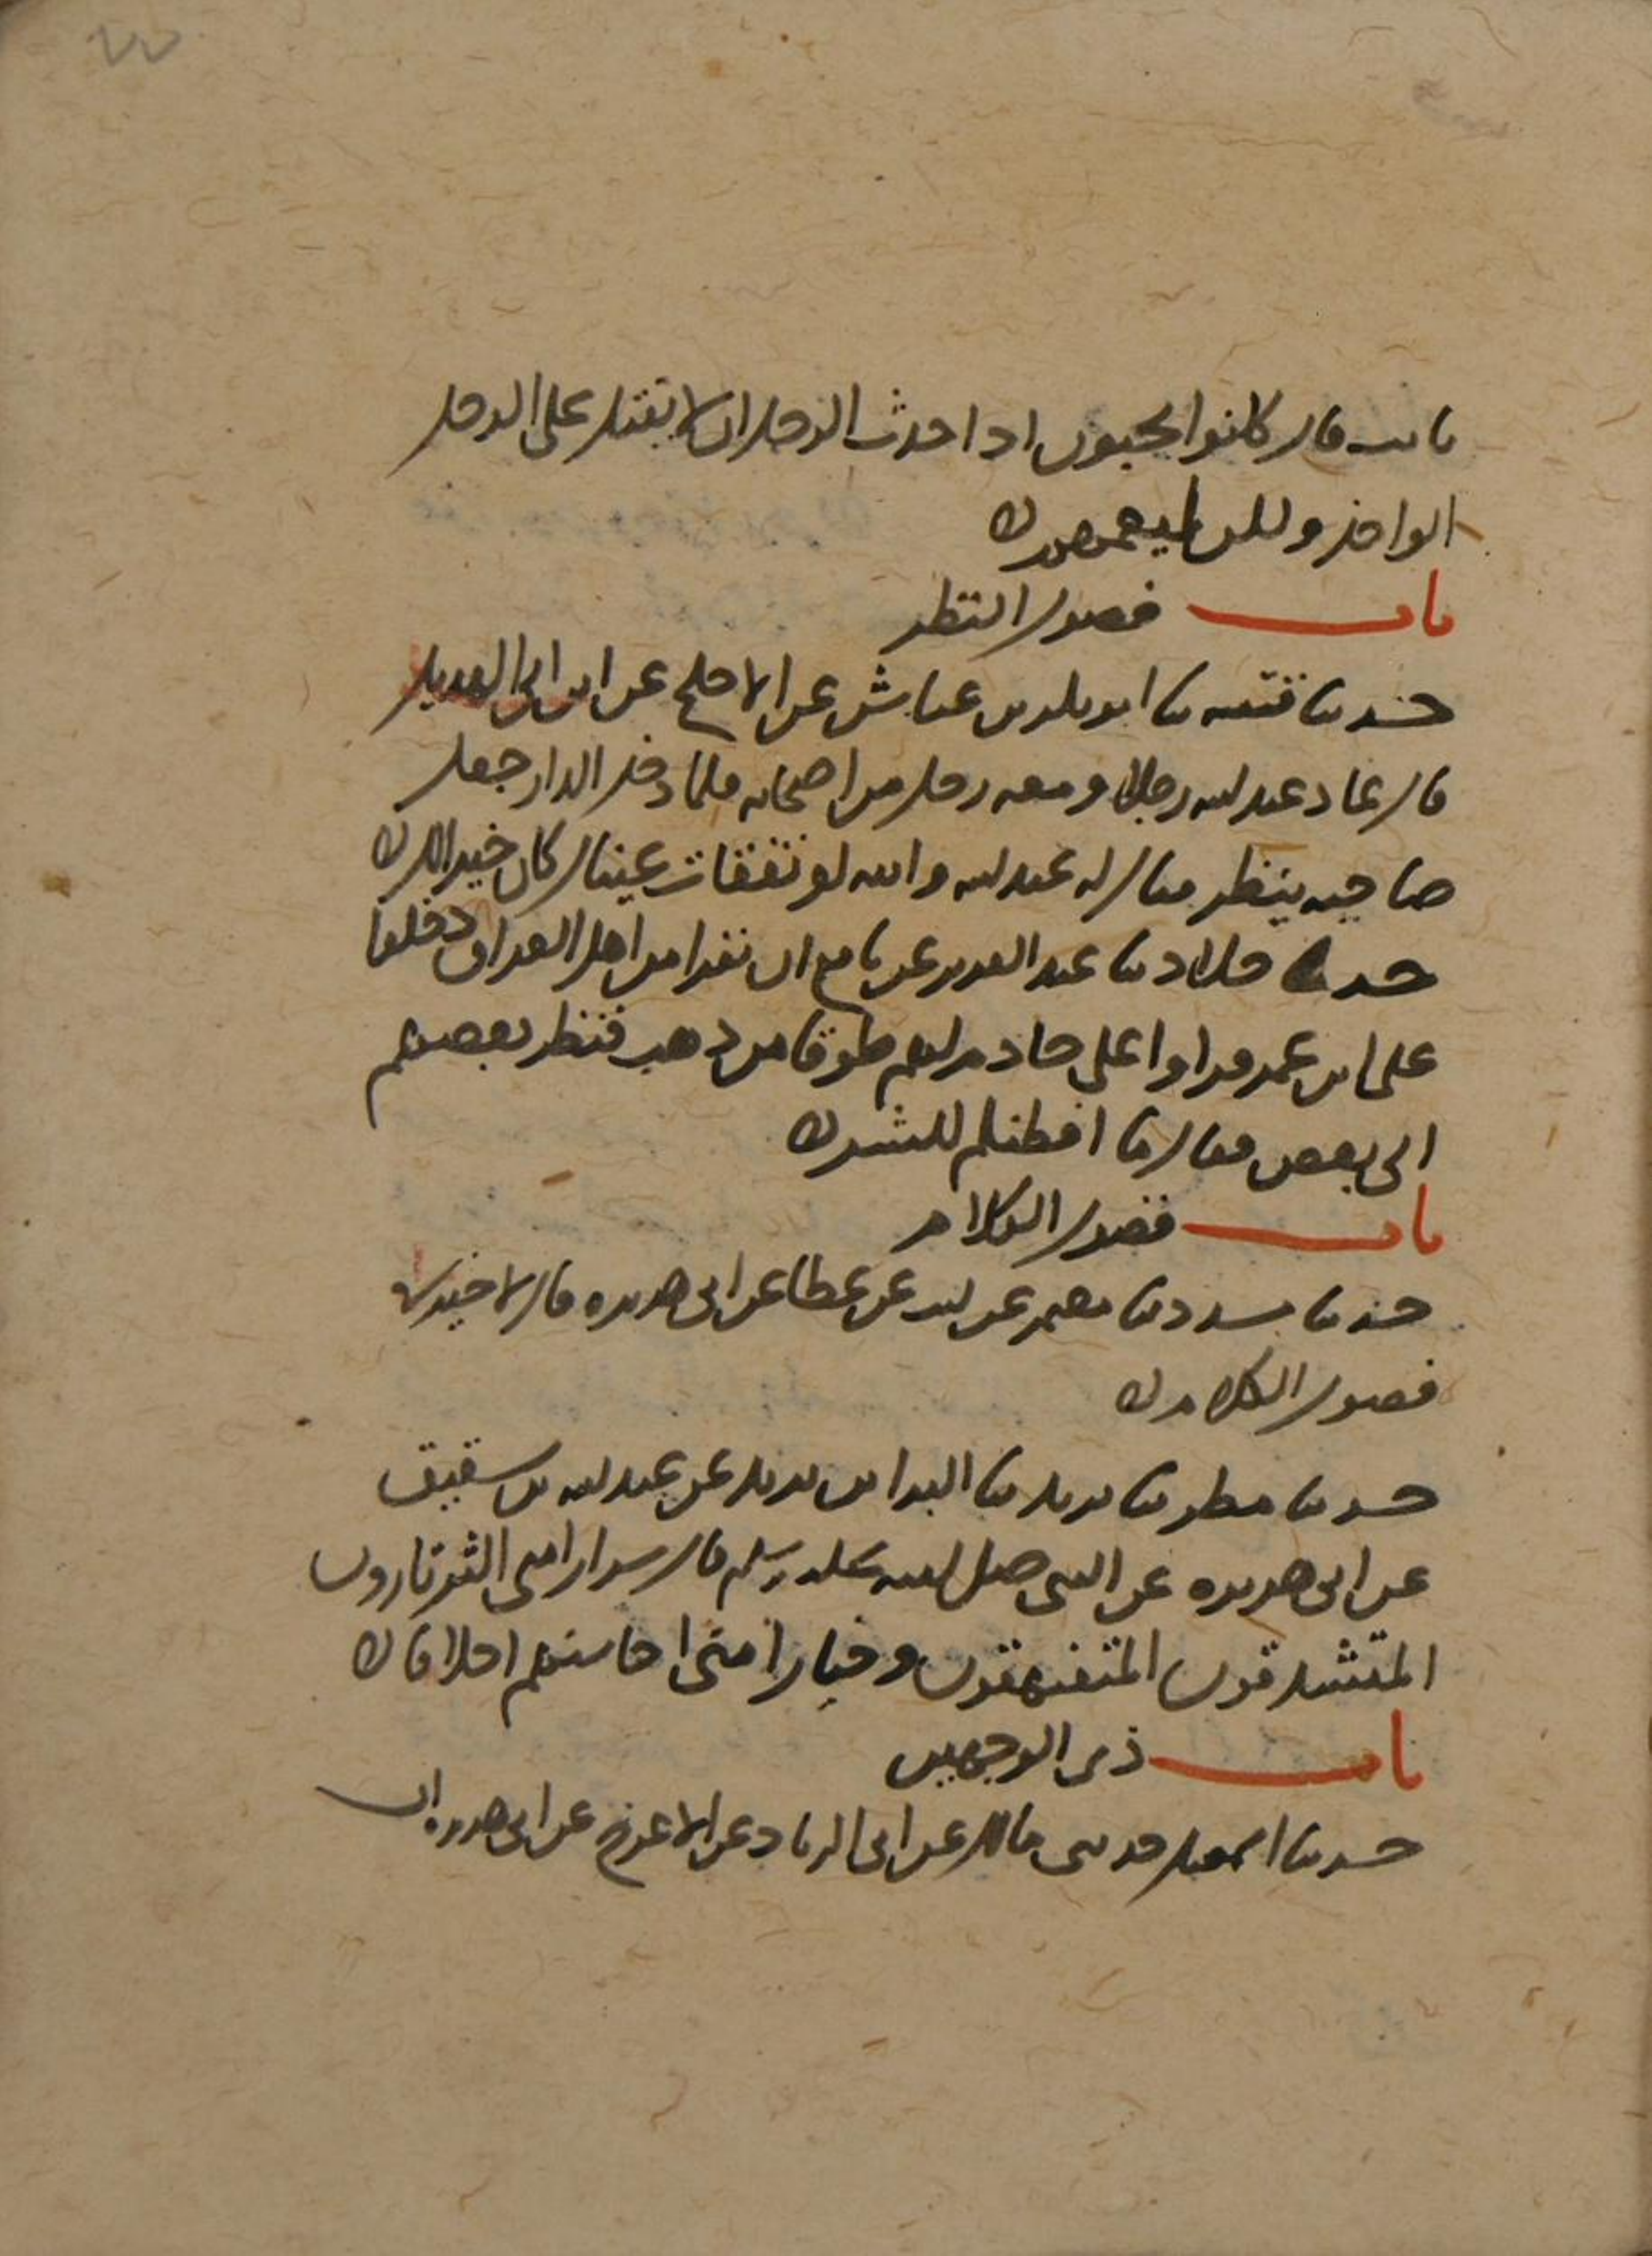 ثابت قال كانوا يحبون اذا حدث الرجل ان لا يقبل على الرجل
الواحد ولكن ليعمهم
باب فضول النظر
حدثنا قتيبه ثنا ابو بكر بن عياش عن الاجلح عن ابن ابي الهذيل
قال عاد عبد الله رجلا ومعه رجل من اصحابه فلما دخل الدار جعل
صاحبه ينظر فقال له عبد الله والله لو تفقات عيناك كان خيرا لك
حدثنا خلاد ثنا عبد العزيز عن نافع ان نفرا من اهل العراق دخلوا
على ابن عمر فراوا على خادم لهم طوقا من ذهب فنظر بعضهم
الى بعض فقال ما افطنكم للشر
باب فضول الكلام
حدثنا مسدد ثنا معتمر عن ليث عن عطا عن ابي هريره قال لا خير في
فضول الكلام
حدثنا مطر ثنا يزيد ثنا البرا بن يزيد عن عبد الله بن شقيق
عن ابي هريره عن النبي صلى الله عليه وسلم قال شرار امتي الثرثارون
المتشدقون المتفيهقون وخيار امتي احاسنهم اخلاقا
باب ذي الوجهين
حدثنا اسمعيل حدثني مالك عن ابي الزناد عن الاعرج عن ابي هريره ان